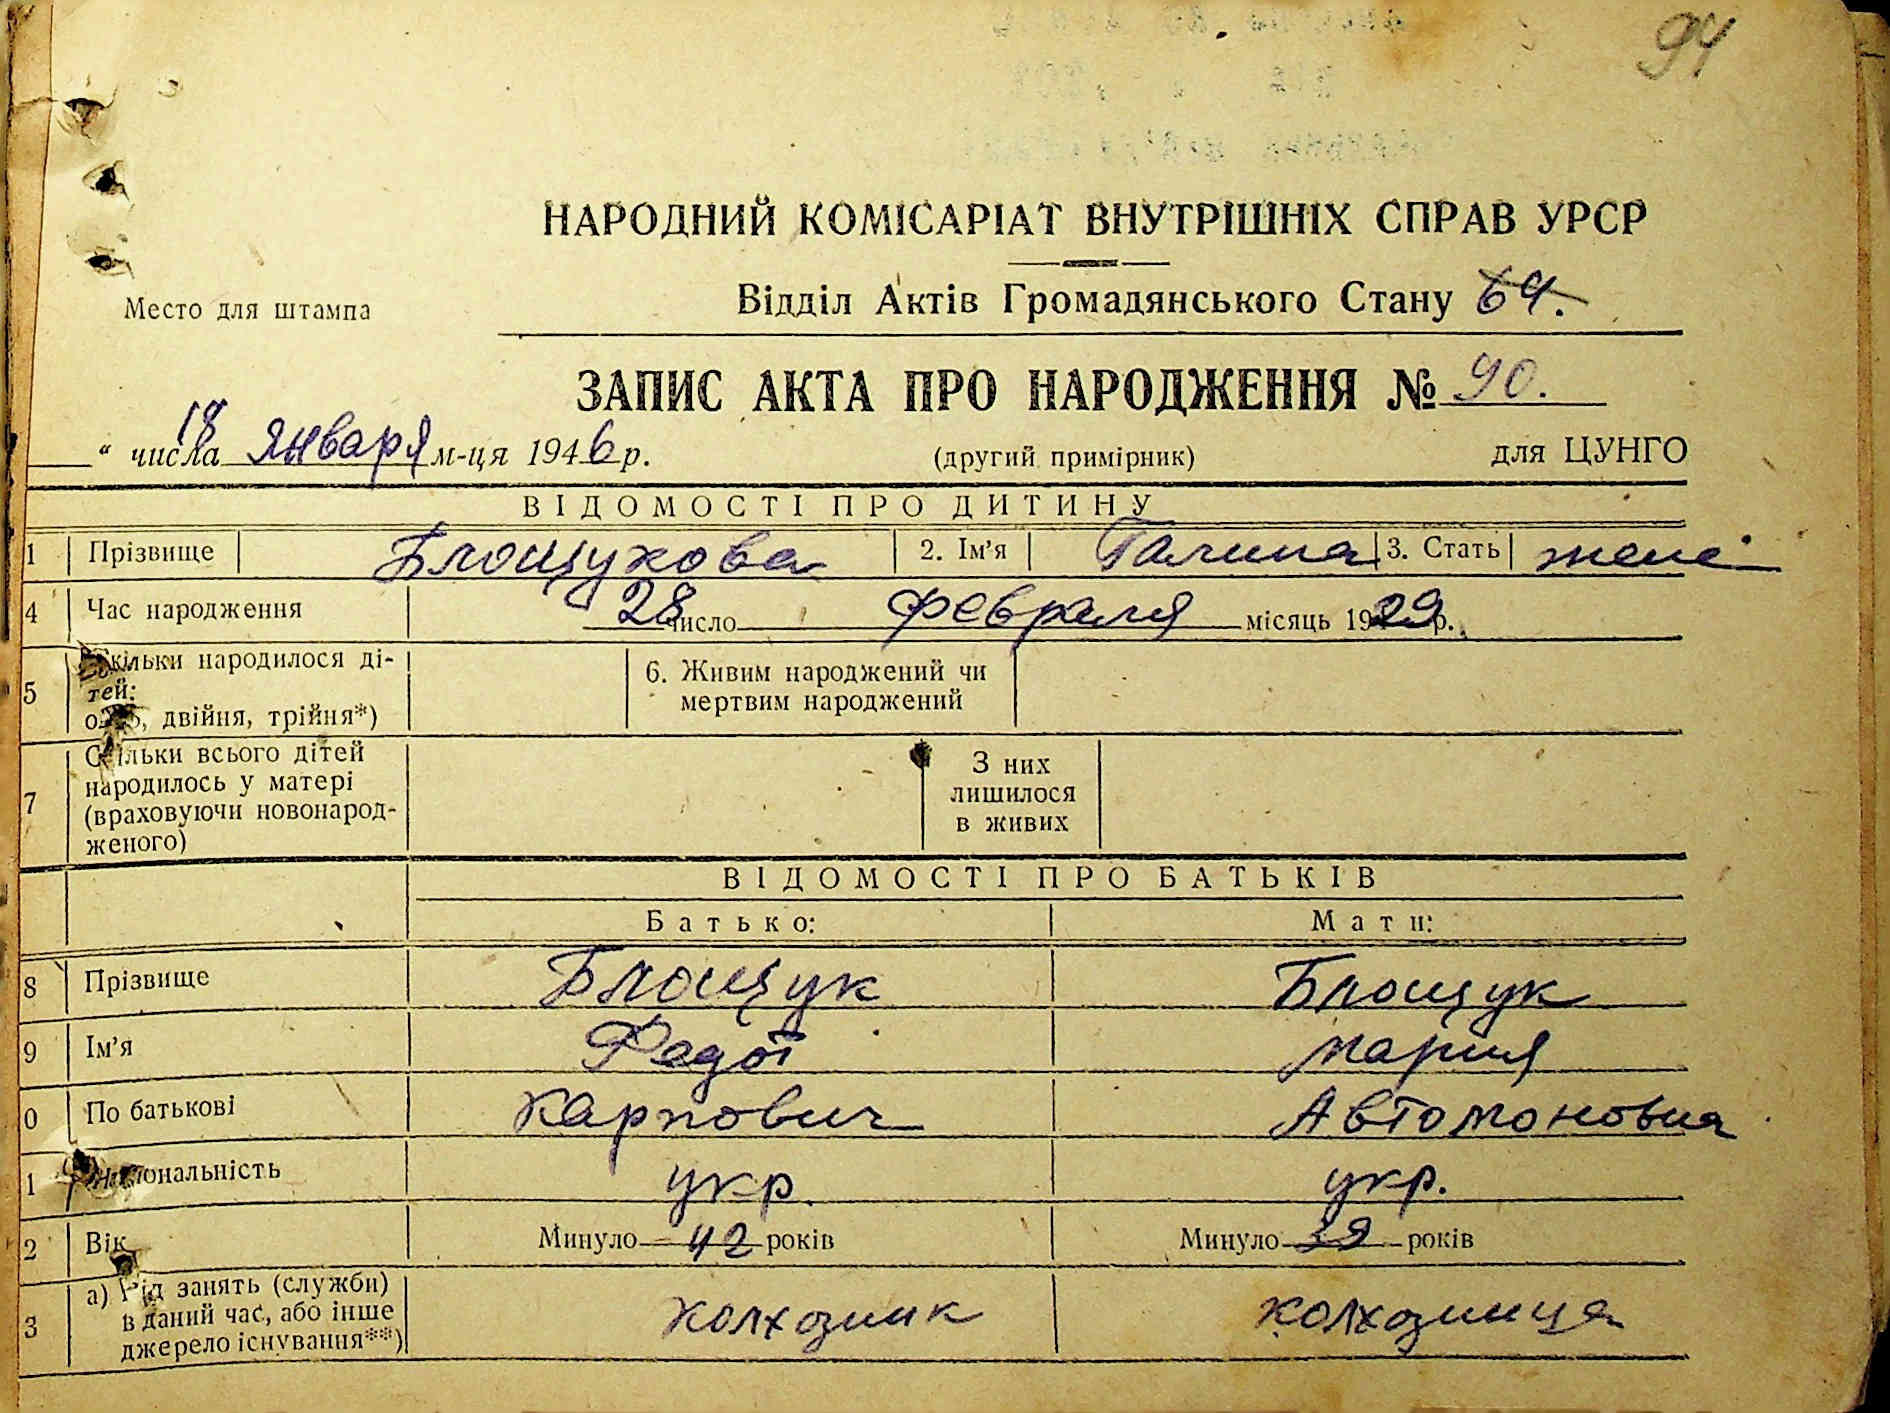 94
НАРОДНИЙ КОМІСАРІАТ ВНУТРІШНІХ СПРАВ УРСР
Место для штампа
Відділ Актів Громадянського Стану 64.
ЗАПИС АКТА ПРО НАРОДЖЕННЯ № 90.
" числа 18 января м-ця 1946 р. (другий примірник) для ЦУНГО
ВІДОМОСТІ ПРО ДИТИНУ
1 Прізвище Блощукова 2. Ім'я Галина 3. Стать жене
4 Час народження 28 число февраля місяць 1929 р.
5 Скільки народилося ді-
тей:
одно, двійня, трійня*)
6. Живим народжений чи
мертвим народжений
7 Скільки всього дітей
народилось у матері
(враховуючи новонарод-
женого)
З них
лишилося
в живих
ВІДОМОСТІ ПРО БАТЬКІВ
Батько: Мати:
8 Прізвище Блощук Блощук
9 Ім'я Федот Мария
0 По батькові Карпович Автомоновна
1 Національність укр. укр.
2 Вік Минуло 42 років Минуло 39 років
3 а) Рід занять (служби)
в даний час, або інше
джерело існування**)
колхозник колхозница